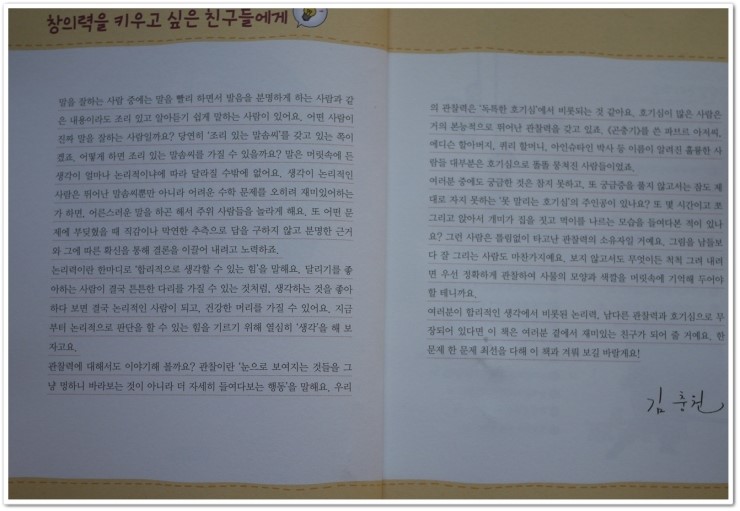 창의력을 키우고 싶은 친구들에게
말을 잘하는 사람 중에는 말을 빨리 하면서 발음을 분명하게 하는 사람과 같
은 내용이라도 조리 있고 알아듣기 쉽게 말하는 사람이 있어요. 어떤 사람이
진짜 말을 잘하는 사람일까요? 당연히 '조리 있는 말솜씨'를 갖고 있는 쪽이
겠죠. 어떻게 하면 조리 있는 말솜씨를 가질 수 있을까요? 말은 머릿속에 든
생각이 얼마나 논리적이냐에 따라 달라질 수밖에 없어요. 생각이 논리적인
사람은 뛰어난 말솜씨뿐만 아니라 어려운 수학 문제를 오히려 재미있어하는
가 하면, 어른스러운 말을 하곤 해서 주위 사람들을 놀라게 해요. 또 어떤 문
제에 부딪혔을 때 직감이나 막연한 추측으로 답을 구하지 않고 분명한 근거
와 그에 따른 확신을 통해 결론을 이끌어 내려고 노력하죠.
논리력이란 한마디로 '합리적으로 생각할 수 있는 힘'을 말해요. 달리기를 좋
아하는 사람이 결국 튼튼한 다리를 가질 수 있는 것처럼, 생각하는 것을 좋아
하다 보면 결국 논리적인 사람이 되고, 건강한 머리를 가질 수 있어요. 지금
부터 논리적으로 판단을 할 수 있는 힘을 기르기 위해 열심히 '생각'을 해 보
자고요.
관찰력에 대해서도 이야기해 볼까요? 관찰이란 '눈으로 보여지는 것들을 그
냥 멍하니 바라보는 것이 아니라 더 자세히 들여다보는 행동'을 말해요. 우리
의 관찰력은 '독특한 호기심'에서 비롯되는 것 같아요. 호기심이 많은 사람은
거의 본능적으로 뛰어난 관찰력을 갖고 있죠. 《곤충기》를 쓴 파브르 아저씨,
에디슨 할아버지, 퀴리 할머니, 아인슈타인 박사 등 이름이 알려진 훌륭한 사
람들 대부분은 호기심으로 똘똘 뭉쳐진 사람들이었죠.
여러분 중에도 궁금한 것은 참지 못하고, 또 궁금증을 풀지 않고서는 잠도 제
대로 자지 못하는 '못 말리는 호기심'의 주인공이 있나요? 또 몇 시간이고 쪼
그리고 앉아서 개미가 집을 짓고 먹이를 나르는 모습을 들여다본 적이 있나
요? 그런 사람은 틀림없이 타고난 관찰력의 소유자일 거예요. 그림을 남들보
다 잘 그리는 사람도 마찬가지예요. 보지 않고서도 무엇이든 척척 그려 내려
면 우선 정확하게 관찰하여 사물의 모양과 색깔을 머릿속에 기억해 두어야
할 테니까요.
여러분이 합리적인 생각에서 비롯된 논리력, 남다른 관찰력과 호기심으로 무
장되어 있다면 이 책은 여러분 곁에서 재미있는 친구가 되어 줄 거예요. 한
문제 한 문제 최선을 다해 이 책과 겨뤄 보길 바랄게요!
김충원